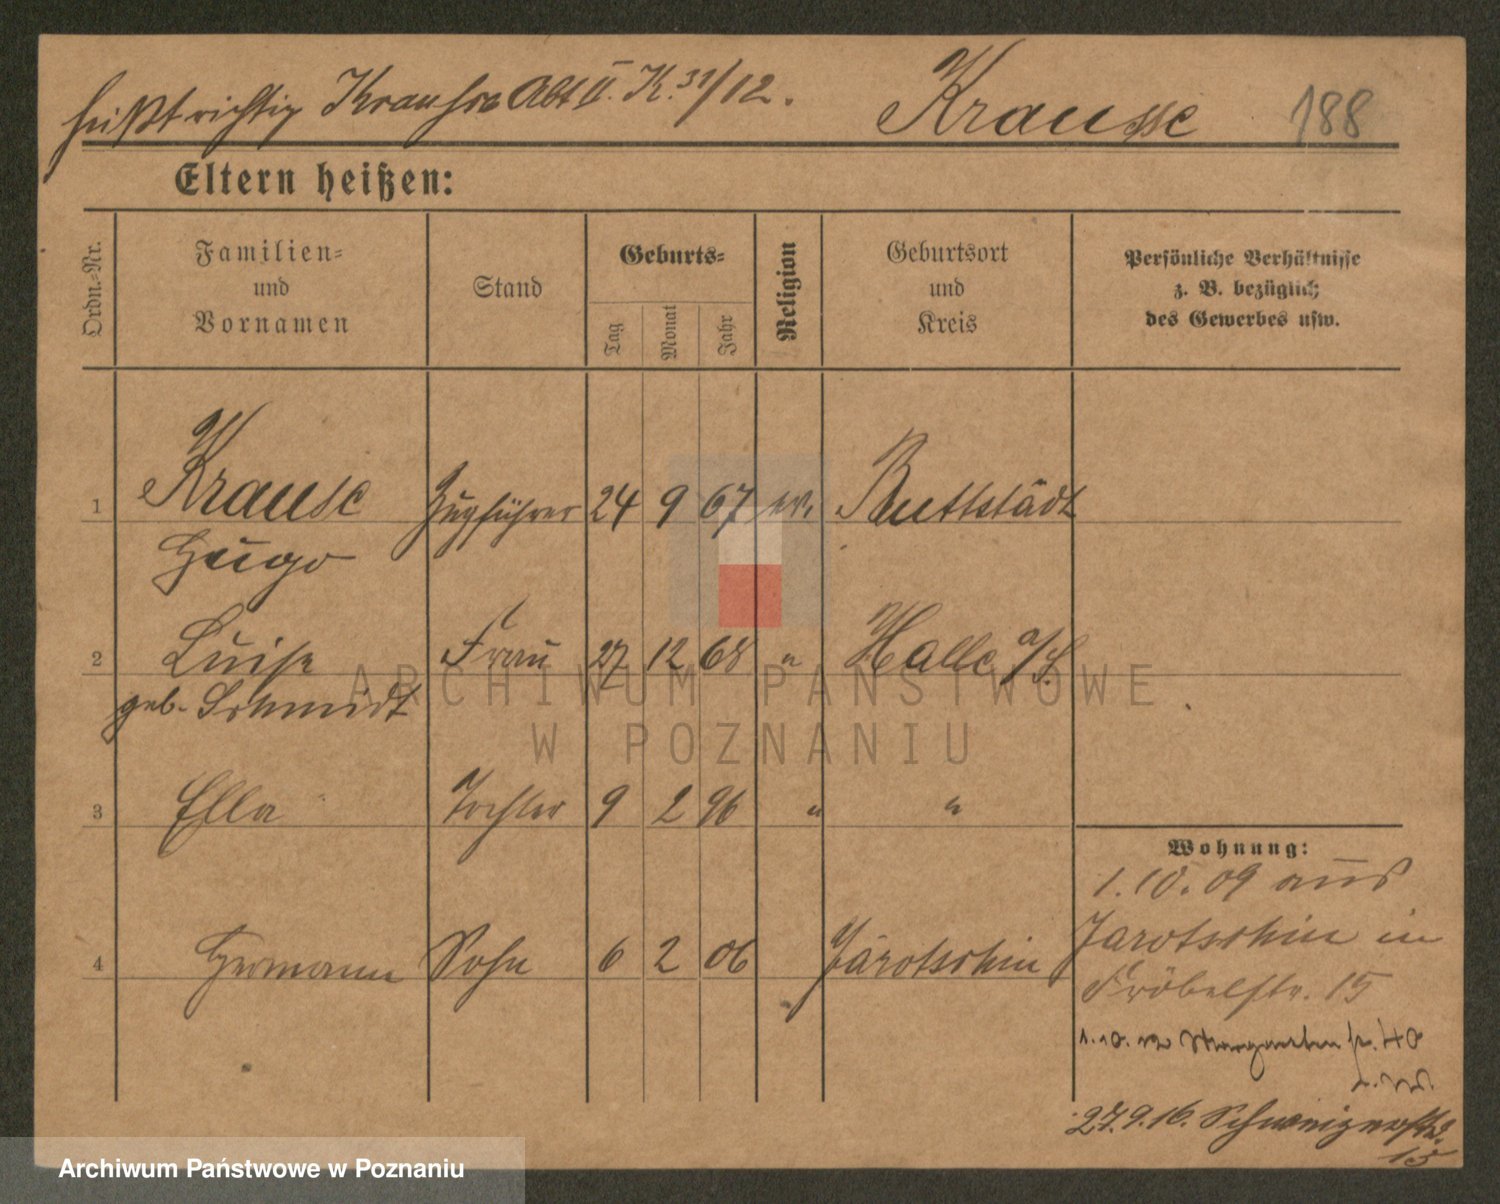 heißt richtig Krause Abt II. K. 31/12. Krausse 188
Eltern heißen:
Ordn.-Nr.
Familien-
und
Vornamen
Stand
Geburts-
Tag
Monat
Jahr
Religion
Geburtsort
und
Kreis
Persönliche Verhältnisse
z. B. bezüglich
des Gewerbes usw.
1 Krause Zugführer 24 9 67 ev. Buttstädt
Hugo
2 Luise Frau 27 12 68 " Halle a/S.
geb. Schmidt
3 Ella Tochter 9 2 96 " "
4 Hermann Sohn 6 2 06 " Jarotschin
Wohnung:
1.10.09 aus
Jarotschin in
Fröbelstr. 15
1.10.12 Margareten str. 40
27.9.16. Schweizerstr.
15
ARCHIWUM PAŃSTWOWE
W POZNANIU
Archiwum Państwowe w Poznaniu